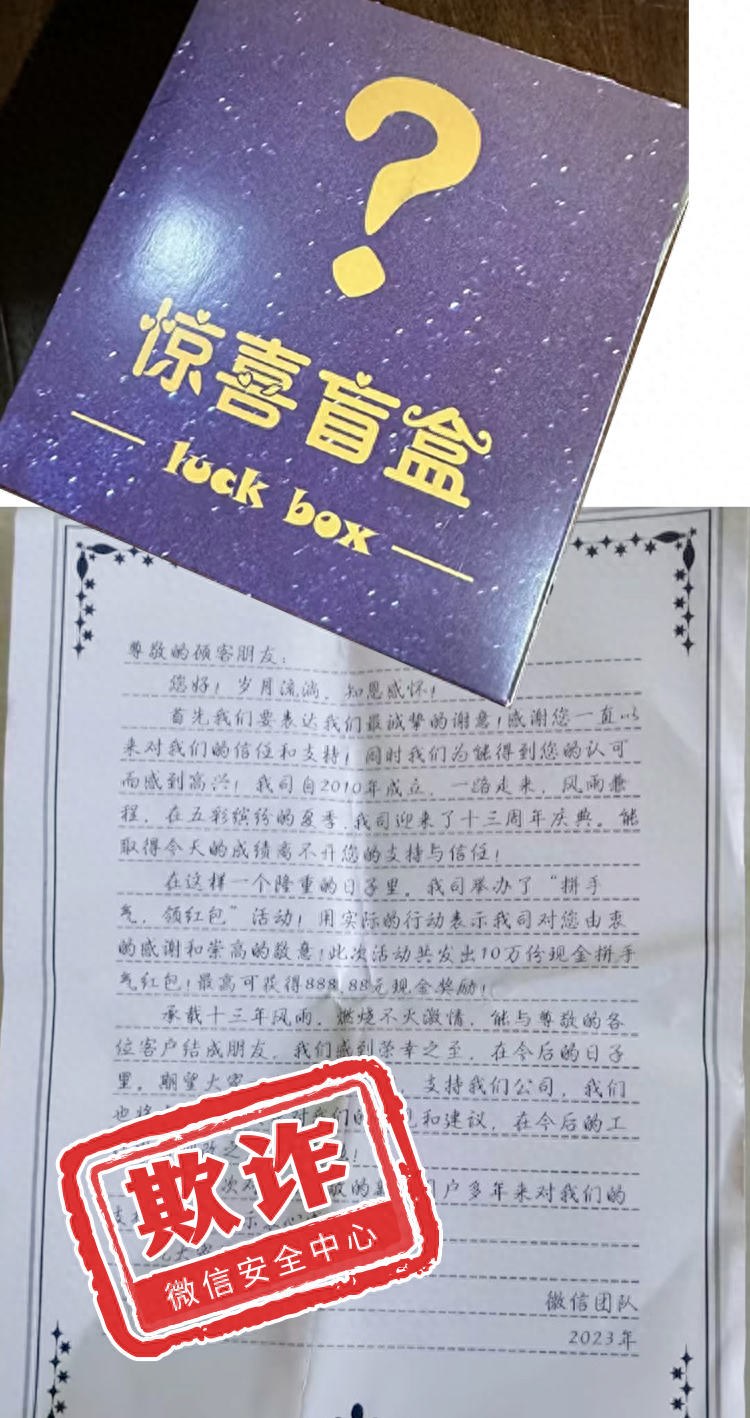 ?
惊喜盲盒
luck box
尊敬的顾客朋友:
您好!岁月流淌,知恩感怀!
首先我们要表达我们最诚挚的谢意!感谢您一直以
来对我们的信任和支持!同时我们为能得到您的认可
而感到高兴!我司自2010年成立,一路走来,风雨兼
程,在五彩缤纷的夏季,我司迎来了十三周年庆典。能
取得今天的成绩离不开您的支持与信任!
在这样一个隆重的日子里,我司举办了“拼手
气,领红包”活动!用实际的行动表示我司对您由衷
的感谢和崇高的敬意!此次活动共发出10万份现金拼手
气红包!最高可获得888.88元现金奖励!
承载十三年风雨,燃烧不灭激情,能与尊敬的各
位客户结成朋友,我们感到荣幸之至,在今后的日子
里,期望大家 支持我们公司,我们
也 对我们的 和建议,在今后的工
之
次 的 户多年来对我们的
支
欺诈
微信安全中心
微信团队
2023年